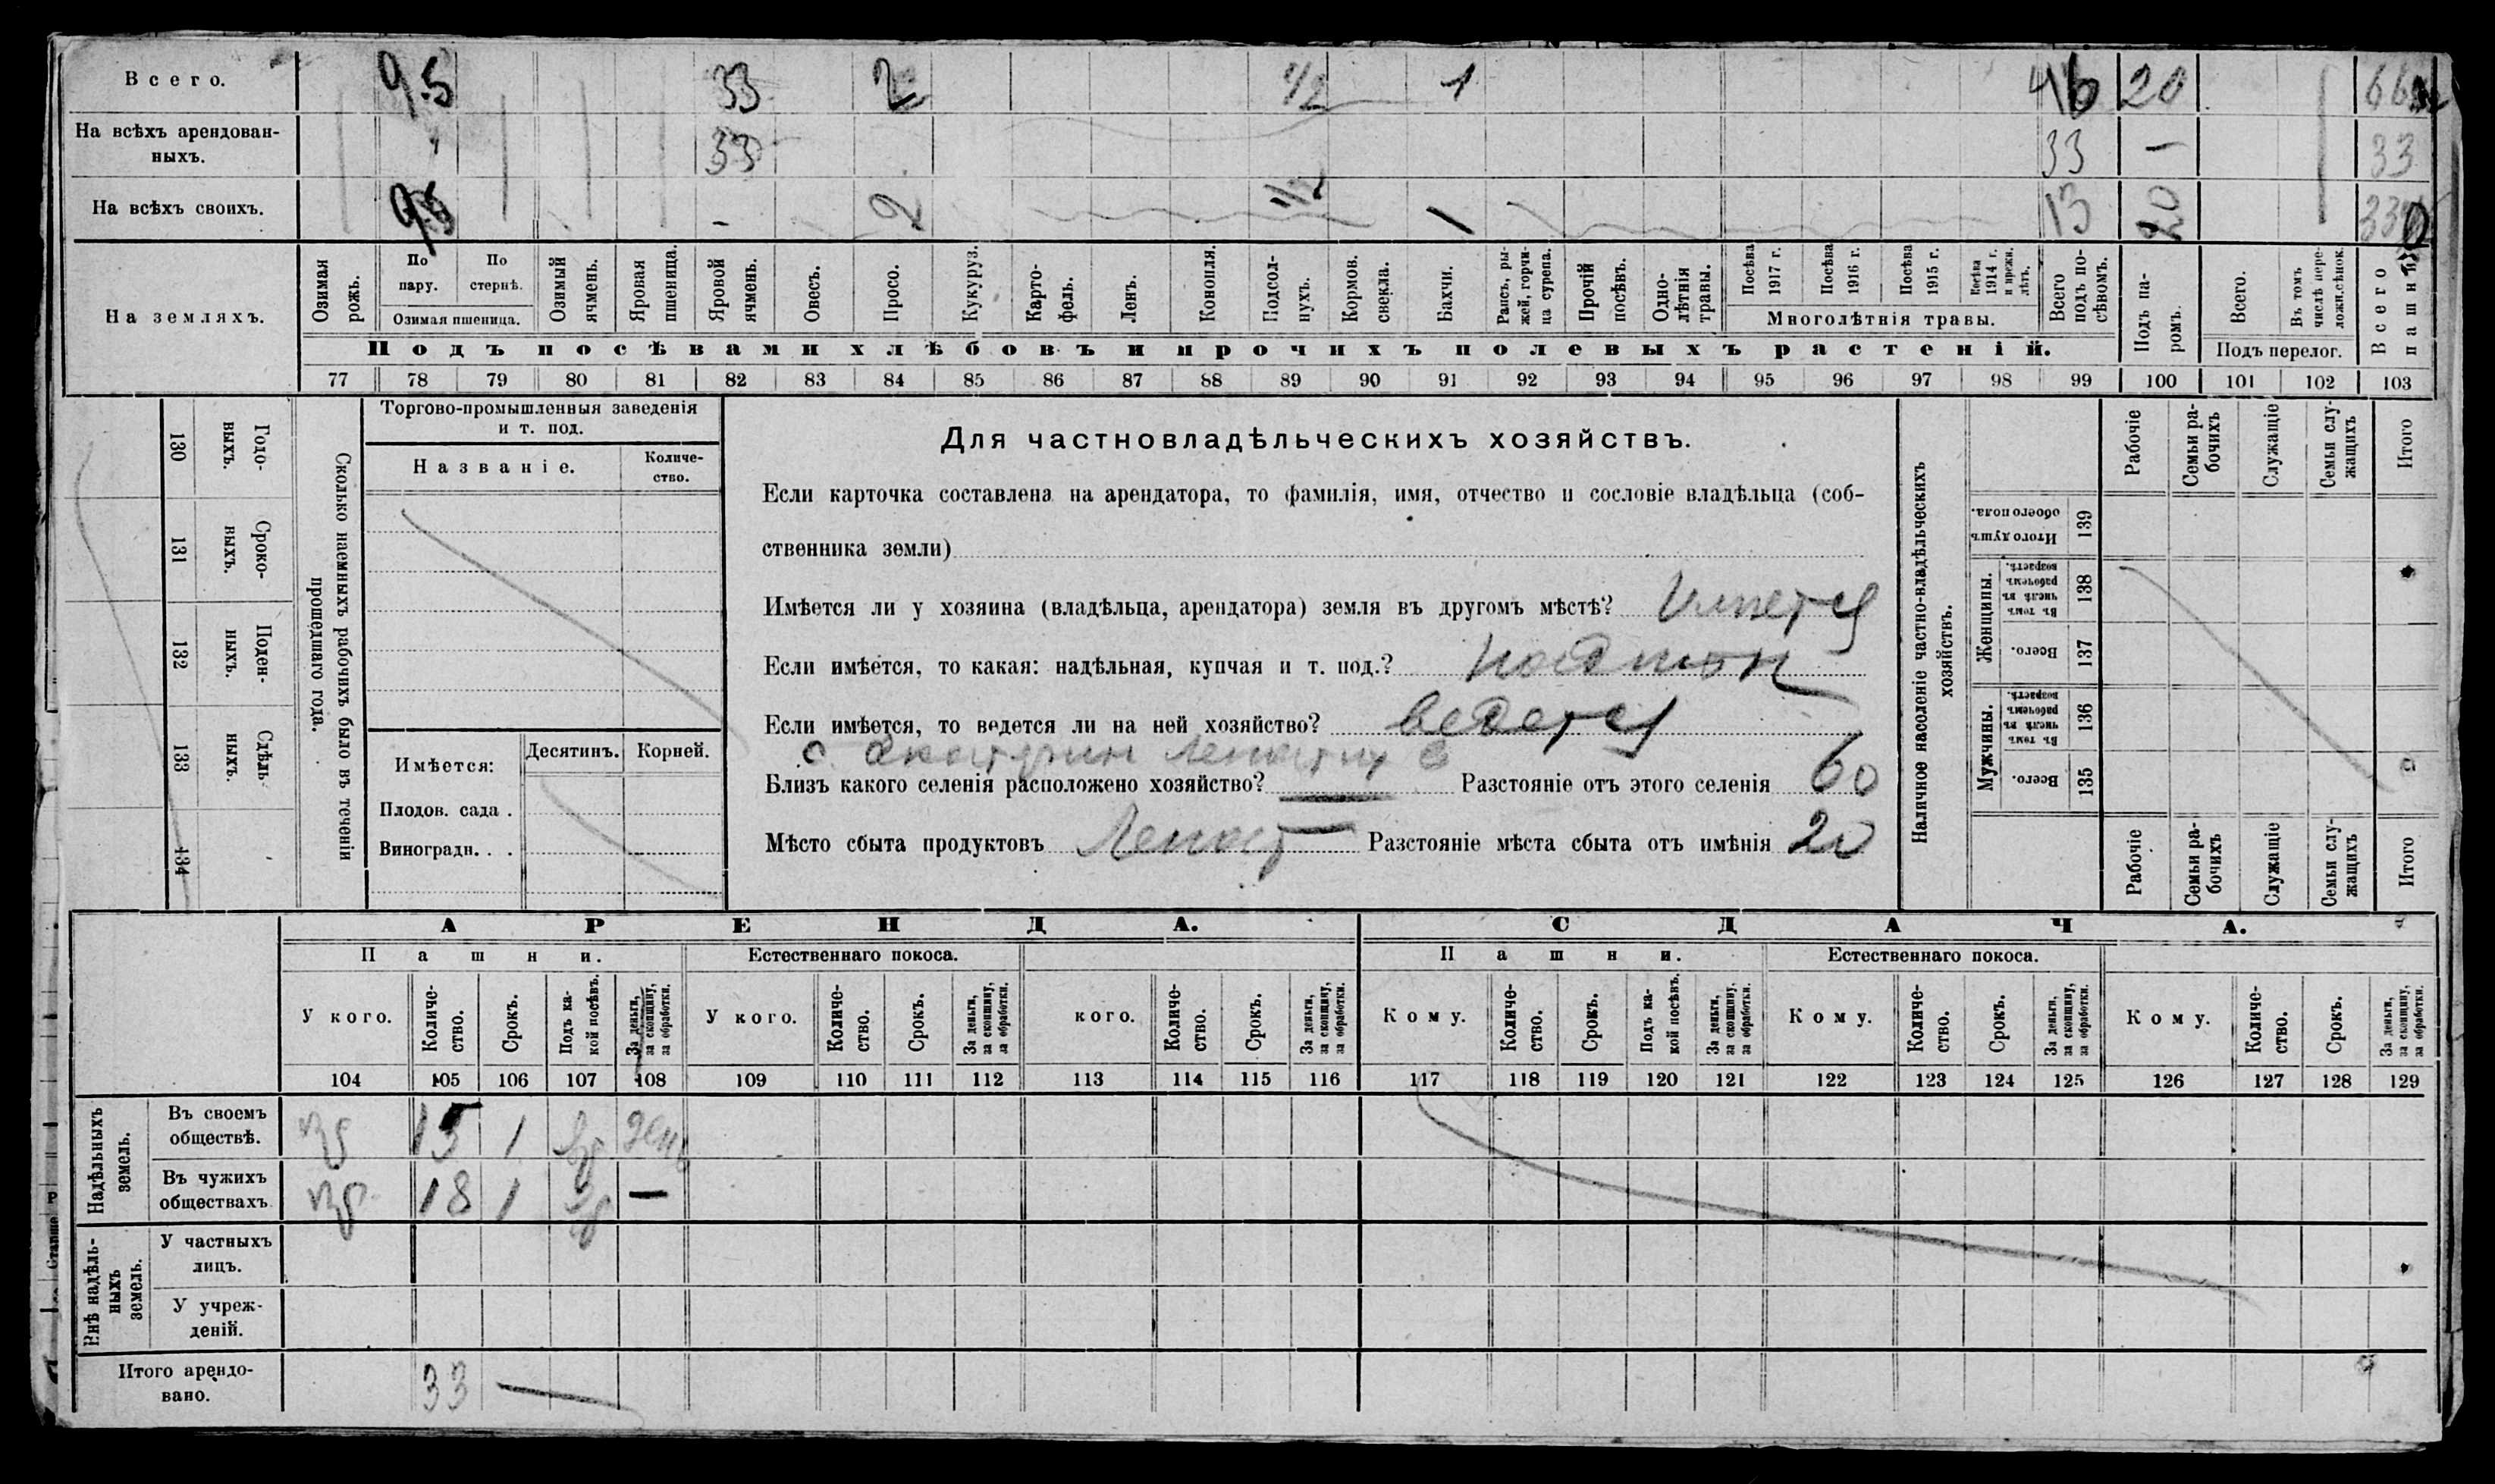 Всего. 9.5 33 2 1/2 1 46 20
На всѣхъ арендован-
ныхъ. 33 33 — 33
На всѣхъ своихъ. 9.5 - 2 1/2 13 20
На земляхъ.
Озимая рожь.
По пару.
По стернѣ.
Озимая пшеница.
Озимый ячмень.
Яровая пшеница.
Яровой ячмень.
Овесъ.
Просо.
Кукуруз.
Карто-
фель.
Ленъ.
Конопля.
Подсол-
нухъ.
Кормов.
свекла.
Бахчи.
Рапсъ, ры-
жей, горчи-
ца сурепа.
Прочій
посѣвъ.
Одно-
лѣтнія
травы.
Посѣва
1917 г.
Посѣва
1916 г.
Посѣва
1915 г.
Посѣва
1914 г.
и прежн.
лѣтъ.
Многолѣтнія травы.
Всего
подъ по-
сѣвомъ.
Подъ па-
ромъ.
Всего.
Въ томъ
числѣ пере-
ложн.сѣнок.
Подъ перелог.
Всего
пашни.
Подъ посѣвами хлѣбовъ и прочихъ полевыхъ растеній.
77 78 79 80 81 82 83 84 85 86 87 88 89 90 91 92 93 94 95 96 97 98 99 100 101 102 103
Годо-
ныхъ.
130
Сроко-
ныхъ.
131
Поден-
ныхъ.
132
Сдѣль-
ныхъ.
133
134
Сколько наемныхъ рабочихъ было въ теченіи
прошедшаго года.
Торгово-промышленныя заведенія
и т. под.
Названіе.
Количе-
ство.
Имѣется:
Десятинъ. Корней.
Плодов. сада .
Виноградн. . .
Для частновладѣльческихъ хозяйствъ.
Если карточка составлена на арендатора, то фамилія, имя, отчество и сословіе владѣльца (соб-
ственника земли)
Имѣется ли у хозяина (владѣльца, арендатора) земля въ другомъ мѣстѣ? Имѣется
Если имѣется, то какая: надѣльная, купчая и т. под.?
Если имѣется, то ведется ли на ней хозяйство? ведется
Близъ какого селенія расположено хозяйство? Разстояніе отъ этого селенія 60
Мѣсто сбыта продуктовъ Разстояніе мѣста сбыта отъ имѣнія 20
Наличное населеніе частно-владѣльческихъ
хозяйствъ.
Итого душъ
обоего пола.
139
Женщины.
Въ томъ
числѣ въ
рабочемъ
возрастѣ.
138
Всего.
137
Мужчины.
Въ томъ
числѣ въ
рабочемъ
возрастѣ.
136
Всего.
135
Рабочіе
Семьи ра-
бочихъ
Служащіе
Семьи слу-
жащихъ
Итого
Рабочіе
Семьи ра-
бочихъ
Служащіе
Семьи слу-
жащихъ
Итого
АРЕНДА. СДАЧА.
Пашни. Естественнаго покоса. Пашни. Естественнаго покоса.
У кого.
Количе-
ство.
Срокъ.
Подъ ка-
кой посѣвъ.
За деньги,
за скопщину,
за обработки.
У кого.
Количе-
ство.
Срокъ.
За деньги,
за скопщину,
за обработки.
кого.
Количе-
ство.
Срокъ.
За деньги,
за скопщину,
за обработки.
Кому.
Количе-
ство.
Срокъ.
Подъ ка-
кой посѣвъ.
За деньги,
за скопщину,
за обработки.
Кому.
Количе-
ство.
Срокъ.
За деньги,
за скопщину,
за обработки.
Кому.
Количе-
ство.
Срокъ.
За деньги,
за скопщину,
за обработки.
104 105 106 107 108 109 110 111 112 113 114 115 116 117 118 119 120 121 122 123 124 125 126 127 128 129
Надѣльныхъ
земель.
Въ своемъ
обществѣ. 15 1
Въ чужихъ
обществахъ 18 1 —
Внѣ надѣль-
ныхъ
земель.
У частныхъ
лицъ.
У учреж-
деній.
Итого арендо-
вано. 33